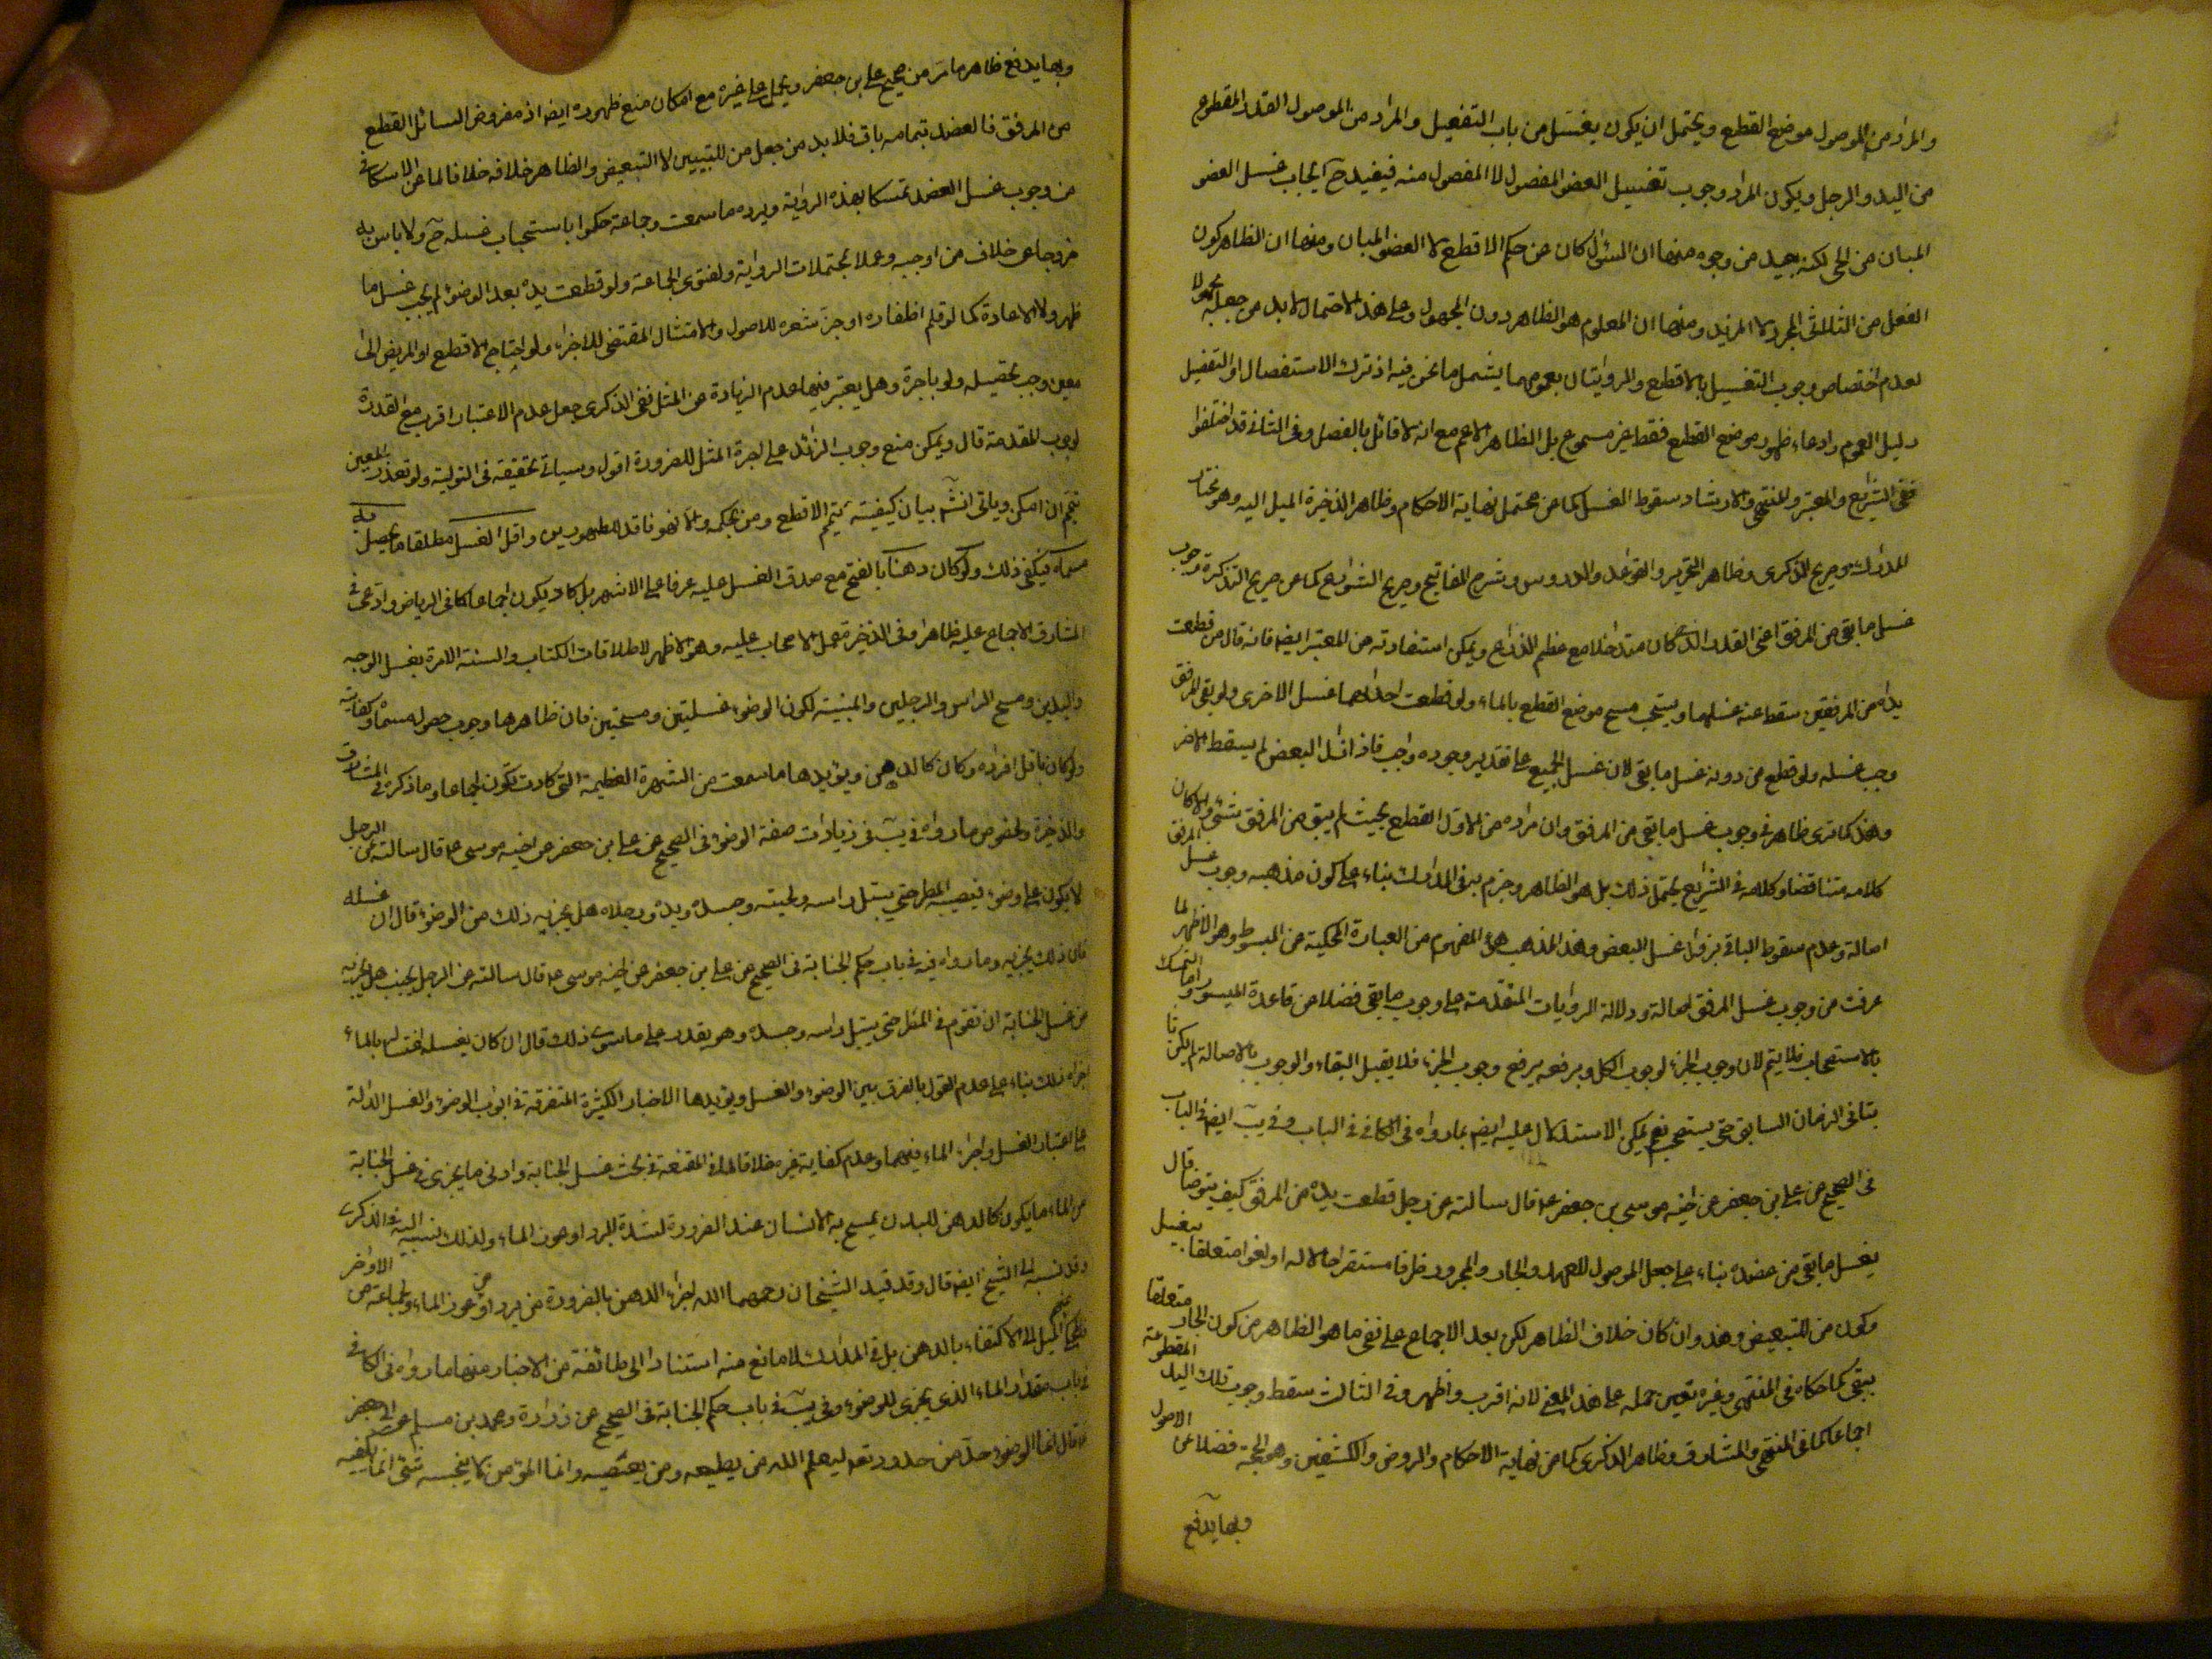 والمراد من الموصول موضع القطع ويحتمل ان يكون يغسل من باب التفعيل والمراد من الموصول القدر المقطوع
من اليد والرجل ويكون المراد وجوب تغسيل العضو المفصول لا المفصول منه فيفيد ح ايجاب غسل العضو
المبان من الحي لكنه بعيد من وجوه منها ان السئوال كان عن حكم الاقطع لا العضو المبان ومنها ان الظاهر كون
الفعل من الثلاثي المجرد لا المزيد ومنها ان المعلوم هو الظاهر دون المجهول وعلى هذا الاحتمال لا بد من جعله مجهولا
لعدم اختصاص وجوب التغسيل بالاقطع والروايتان بعمومهما يشمل ما نحن فيه اذ ترك الاستفصال او التفصيل
دليل العموم وادعاء ظهور موضع القطع فقط غير مسموع بل الظاهر الاعم مع انه لا قائل بالفصل وفي الثاني قد اختلفوا
ففي الشرايع والمعتبر والمنتهى والارشاد سقوط الغسل كما عن محتمل نهاية الاحكام وظاهر الذخيرة الميل اليه وهو مختار
المدارك وصريح الذكرى وظاهر التحرير والقواعد والدروس وشرح المفاتيح وصريح الشرايع كما عن صريح التذكرة وجوب
غسل ما بقي من المرفق اعني القدر الذي كان متداخلا مع عظم الذراع ويمكن استفادته من المعتبر ايضا فانه قال من قطعت
يداه من المرفقين سقط عنه غسلهما ويستحب مسح موضع القطع بالماء ولو قطعت احداهما غسل الاخرى ولو بقي المرفق
وجب غسله ولو قطع من دونه غسل ما بقي لان غسل الجميع على تقدير وجوده واجب فاذا زال البعض لم يسقط الاخر
وهذا كما ترى ظاهر في وجوب غسل ما بقي من المرفق وان مراده من الاول القطع بحيث لم يبق من المرفق شئ والا كان
كلامه متناقضا وكلامه في الشرايع يحتمل ذلك بل هو الظاهر وجزم به في المدارك بناء على كون مذهبه وجوب غسل المرفق
اصالة وعدم سقوط الباقي بزوال غسل البعض وهذا المذهب هو المفهوم من العبارة المحكية من المبسوط وهو الاظهر لما
عرفت من وجوب غسل المرفق اصالة ودلالة الروايات المتقدمة على وجوب ما بقي فضلا من قاعدة الميسور واما التمسك
بالاستصحاب فلا يتم لان وجوب الجزء لوجوب الكل وبرفعه يرفع وجوب الجزء فلا يقبل البقاء والوجوب بالاصالة لم يكن ثا
بتا في الزمان السابق حتى يستصحب نعم يمكن الاستدلال عليه ايضا بما رواه في الكافي في الباب وفي يب ايضا في الباب
في الصحيح عن علي بن جعفر عن اخيه موسى بن جعفر ع قال سالته عن رجل قطعت يده من المرفق كيف يتوضا قال
يغسل ما بقي من عضده بناء على جعل الموصول للعهد والجار والمجرور ظرفا مستقرا حالا له او لغوا متعلقا بيغسل
وكون من للتبعيض وهذا وان كان خلاف الظاهر لكن بعد الاجماع على نفي ما هو الظاهر من كون الجار متعلقا
يبقى كما حكاه في المنتهى وغيره تعين حمله على هذا المعنى لانه اقرب واظهر وفي الثالث سقط وجوب تلك اليد المقطوعة
اجماعا كما في المنتهى والمشارق وظاهر الذكرى كما من نهاية الاحكام والروض والكشفين وهو الحجة فضلا عن الاصول
وبها يدفع
وبها يدفع ظاهر ما مر من صحيح علي بن جعفر ويحمل على غيره مع امكان منع ظهوره ايضا اذ مفروض السائل القطع
من المرفق فالعضد بتمامه باق فلا بد من جعل من للتبيين لا التبعيض والظاهر خلافه خلافا لما عن الاسكافي
من وجوب غسل العضد تمسكا بهذه الرواية ويرده ما سمعت وجماعة حكموا باستحباب غسله ح ولا باس به
خروجا عن خلاف من اوجبه وعملا بمحتملات الرواية ولفتوى الجماعة ولو قطعت يده بعد الوضوء لم يجب غسل ما
ظهر ولا الاعادة كما لو قلم اظفاره او جز شعره للاصول والامتثال المقتضي للاجزاء ولو احتاج الاقطع او المريض الى
معين وجب تحصيله ولو باجرة وهل يعتبر فيها عدم الزيادة عن المثل ففي الذكرى جعل عدم الاعتبار اقرب مع القدرة
لوجوب المقدمة قال ويمكن منع وجوب الزائد على اجرة المثل للضرورة اقول وسياتي تحقيقه في التولية ولو تعذر المعين
تيمم ان امكن وياتي انش بيان كيفية تيمم الاقطع ومن بحكمه والا فهو فاقد للطهورين واقل الغسل مطلقا ما يحصل به
مسماه فيكفي ذلك ولو كان دهنا بالفتح مع صدق الغسل عليه عرفا على الاشهر بل كاد يكون اجماعا كما في الرياض وادعى في
المشارق الاجماع عليه ظاهرا وفي الذخيرة عمل الاصحاب عليه وهو الاظهر لاطلاقات الكتاب والسنة الامرة بغسل الوجه
واليدين ومسح الراس والرجلين والمبنية لكون الوضوء غسلتين ومسحتين فان ظاهرها وجوب حصول مسماه وكفايته
ولو كان باقل افراده وكان كالدهن ويؤيدها ما سمعت من الشهرة العظيمة التي كادت تكون اجماعا وما ذكره في المشارق
والذخيرة ولخصوص ما رواه في يب في زيادات صفة الوضوء في الصحيح عن علي بن جعفر عن اخيه موسى ع قال سالته عن الرجل
لا يكون على وضوء فيصيبه المطر حتى يبتل راسه ولحيته وجسده ويداه ورجلاه هل يجزيه ذلك من الوضوء قال ان غسله
فان ذلك يجزيه وما رواه فيه في باب حكم الجنابة في الصحيح عن علي بن جعفر عن اخيه موسى ع قال سالته عن الرجل يجنب هل يجزيه
من غسل الجنابة ان يقوم في المطر حتى يبتل راسه وجسده وهو يقدر على ما سوى ذلك قال ان كان يغسله اغتساله بالماء
اجزاه ذلك بناء على عدم القول بالفرق بين الوضوء والغسل ويؤيدها الاخبار الكثيرة المتفرقة في ابواب الوضوء والغسل الدالة
على اعتبار الغسل واجراء الماء فيهما وعدم كفاية غيره خلافا لما في المقنعة في بحث غسل الجنابة وادنى ما يجزي في غسل الجنابة
من الماء ما يكون كالدهن للبدن يمسح به الانسان عند الضرورة لشدة البرد او عوز الماء ولذلك نسبه اليه في الذكرى
وقد نسبه الى الشيخ ايضا قال وقد قيد الشيخان رحمهما الله اجزاء الدهن بالضرورة من برد او عوز الماء ولجماعة من الاواخر
الميل الى الاكتفاء بالدهن بل في المدارك لا مانع منه استنادا الى طائفة من الاخبار منها ما رواه في الكافي
في باب مقدار الماء الذي يجزي للوضوء وفي يب في باب حكم الجنابة في الصحيح عن زرارة ومحمد بن مسلم عن ابي جعفر
قال انما الوضوء حد من حدود الله ليعلم الله من يطيعه ومن يعصيه وانما المؤمن لا ينجسه شئ انما يكفيه